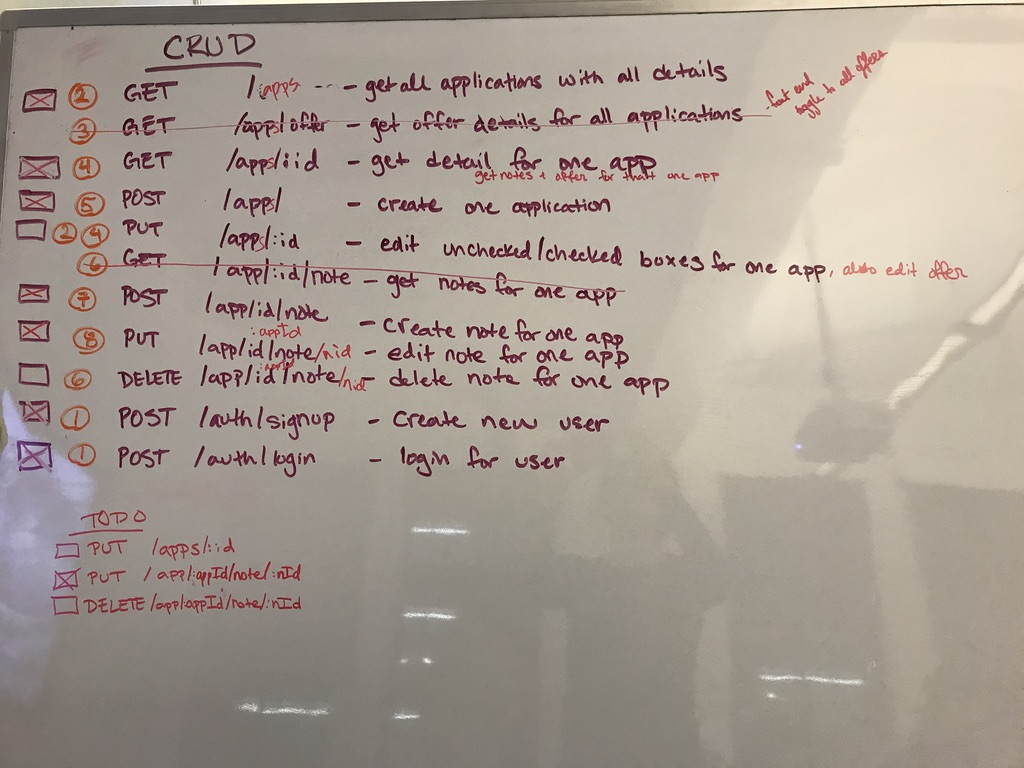 CRUD
② GET /apps --- - get all applications with all details
③ GET /apps/offer - get offer details for all applications - front end toggle to all offers
④ GET /apps/:id - get detail for one app
get notes + offer for that one app
⑤ POST /apps/ - create one application
② ④ PUT /apps/:id - edit unchecked/checked boxes for one app, also edit offer
⑥ GET /app/:id/note - get notes for one app
⑦ POST /app/id/note - create note for one app
:appId
⑧ PUT /app/id/note/nid - edit note for one app
⑥ DELETE /app/id/note/nid - delete note for one app
① POST /auth/signup - Create new user
① POST /auth/login - login for user
TODO
PUT /apps/:id
PUT /app/:appId/note/:nId
DELETE /app/appId/note/:nId